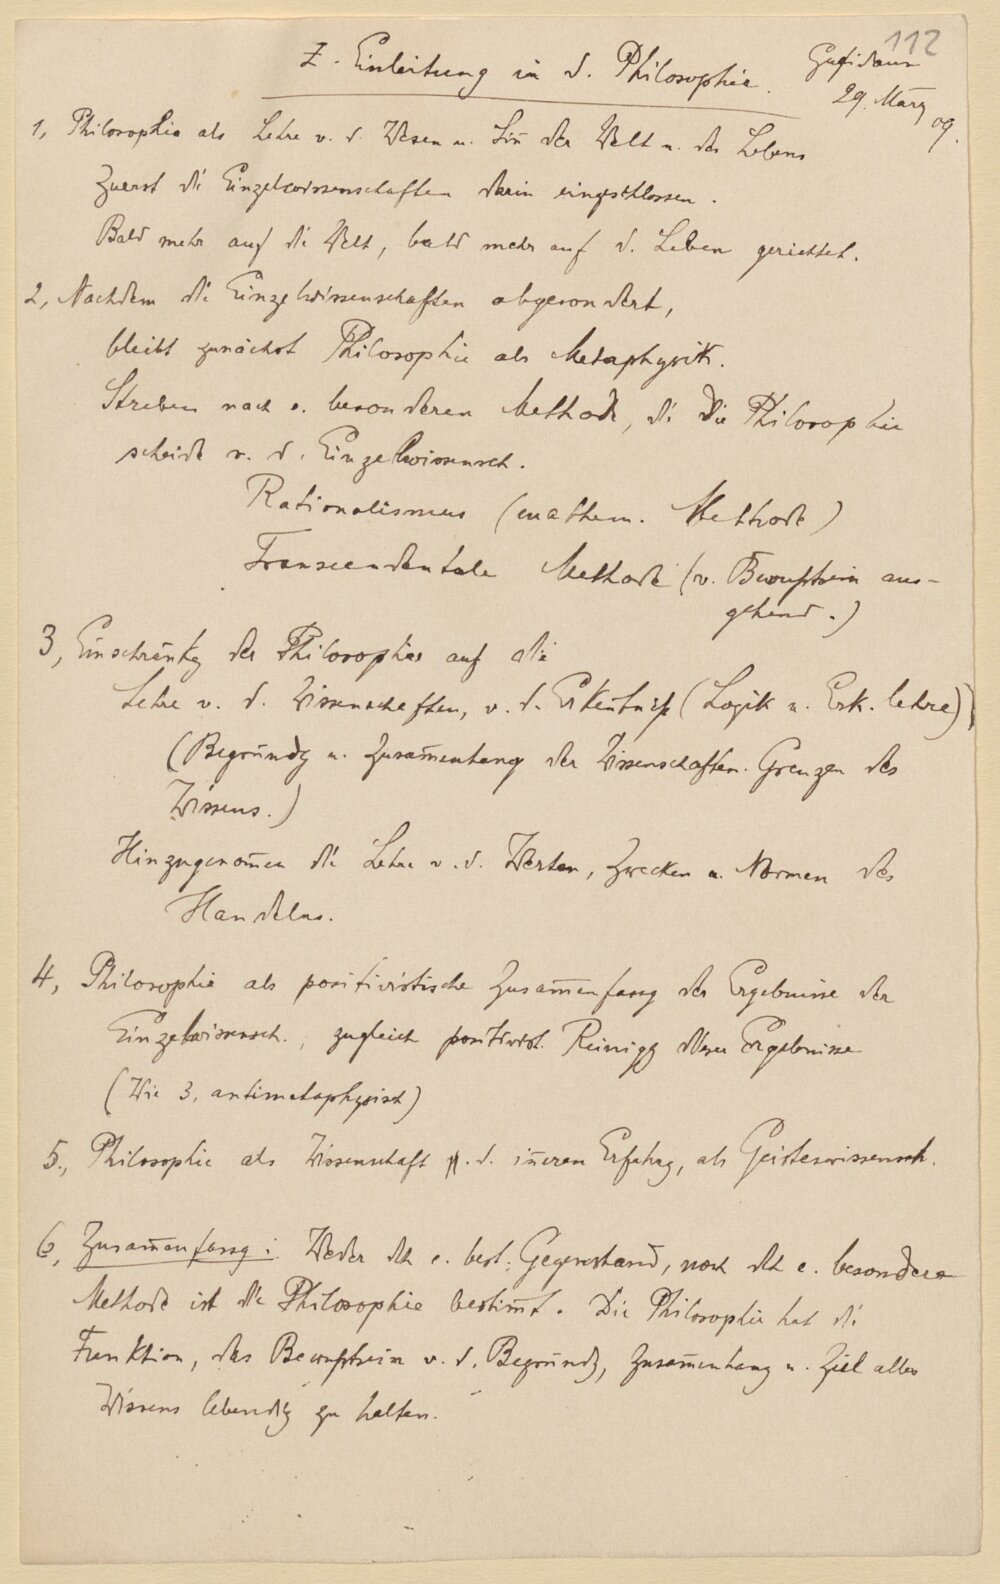 112
Z. Einleitung in d. Philosophie.
Gufidaun
29. März 09.
1, Philosophie als Lehre v. d. Wesen u. Siñ der Welt u. des Lebens
Zuerst die Einzelwissenschaften darin eingeschlossen.
Bald mehr auf die Welt, bald mehr auf d. Leben gerichtet.
2, Nachdem die Einzelwissenschaften abgesondert,
bleibt zunächst Philosophie als Metaphysik.
Streben nach e. besonderen Methode, die die Philosophie
scheide v. d. Einzelwissensch.
Rationalismus (mathem. Methode)
Transcendentale Methode (v. Bewußtsein aus-
gehend.)
3, Einschränkg der Philosophie auf die
Lehre v. d. Wissenschaften, v. d. Erkeñtniß (Logik u. Erk. lehre)
(Begründg u. Zusam̄enhang der Wissenschaften. Grenzen des
Wissens.)
Hinzugenom̄en die Lehre v. d. Werten, Zwecken u. Normen des
Handelns.
4, Philosophie als positivistische Zusam̄enfassg der Ergebnisse der
Einzelwissensch., zugleich positivist. Reinigg dieser Ergebnisse
(Wie 3, antimetaphysisch)
5., Philosophie als Wissenschaft v. d. iñeren Erfahrg, als Geisteswissensch.
6, Zusam̄enfassg: Weder dch e. best. Gegenstand, noch dch e. besondere
Methode ist die Philosophie bestim̄t. Die Philosophie hat die
Funktion, das Bewußtsein v. d. Begründg, Zusam̄enhang u. Ziel alles
Wissens lebendig zu halten.